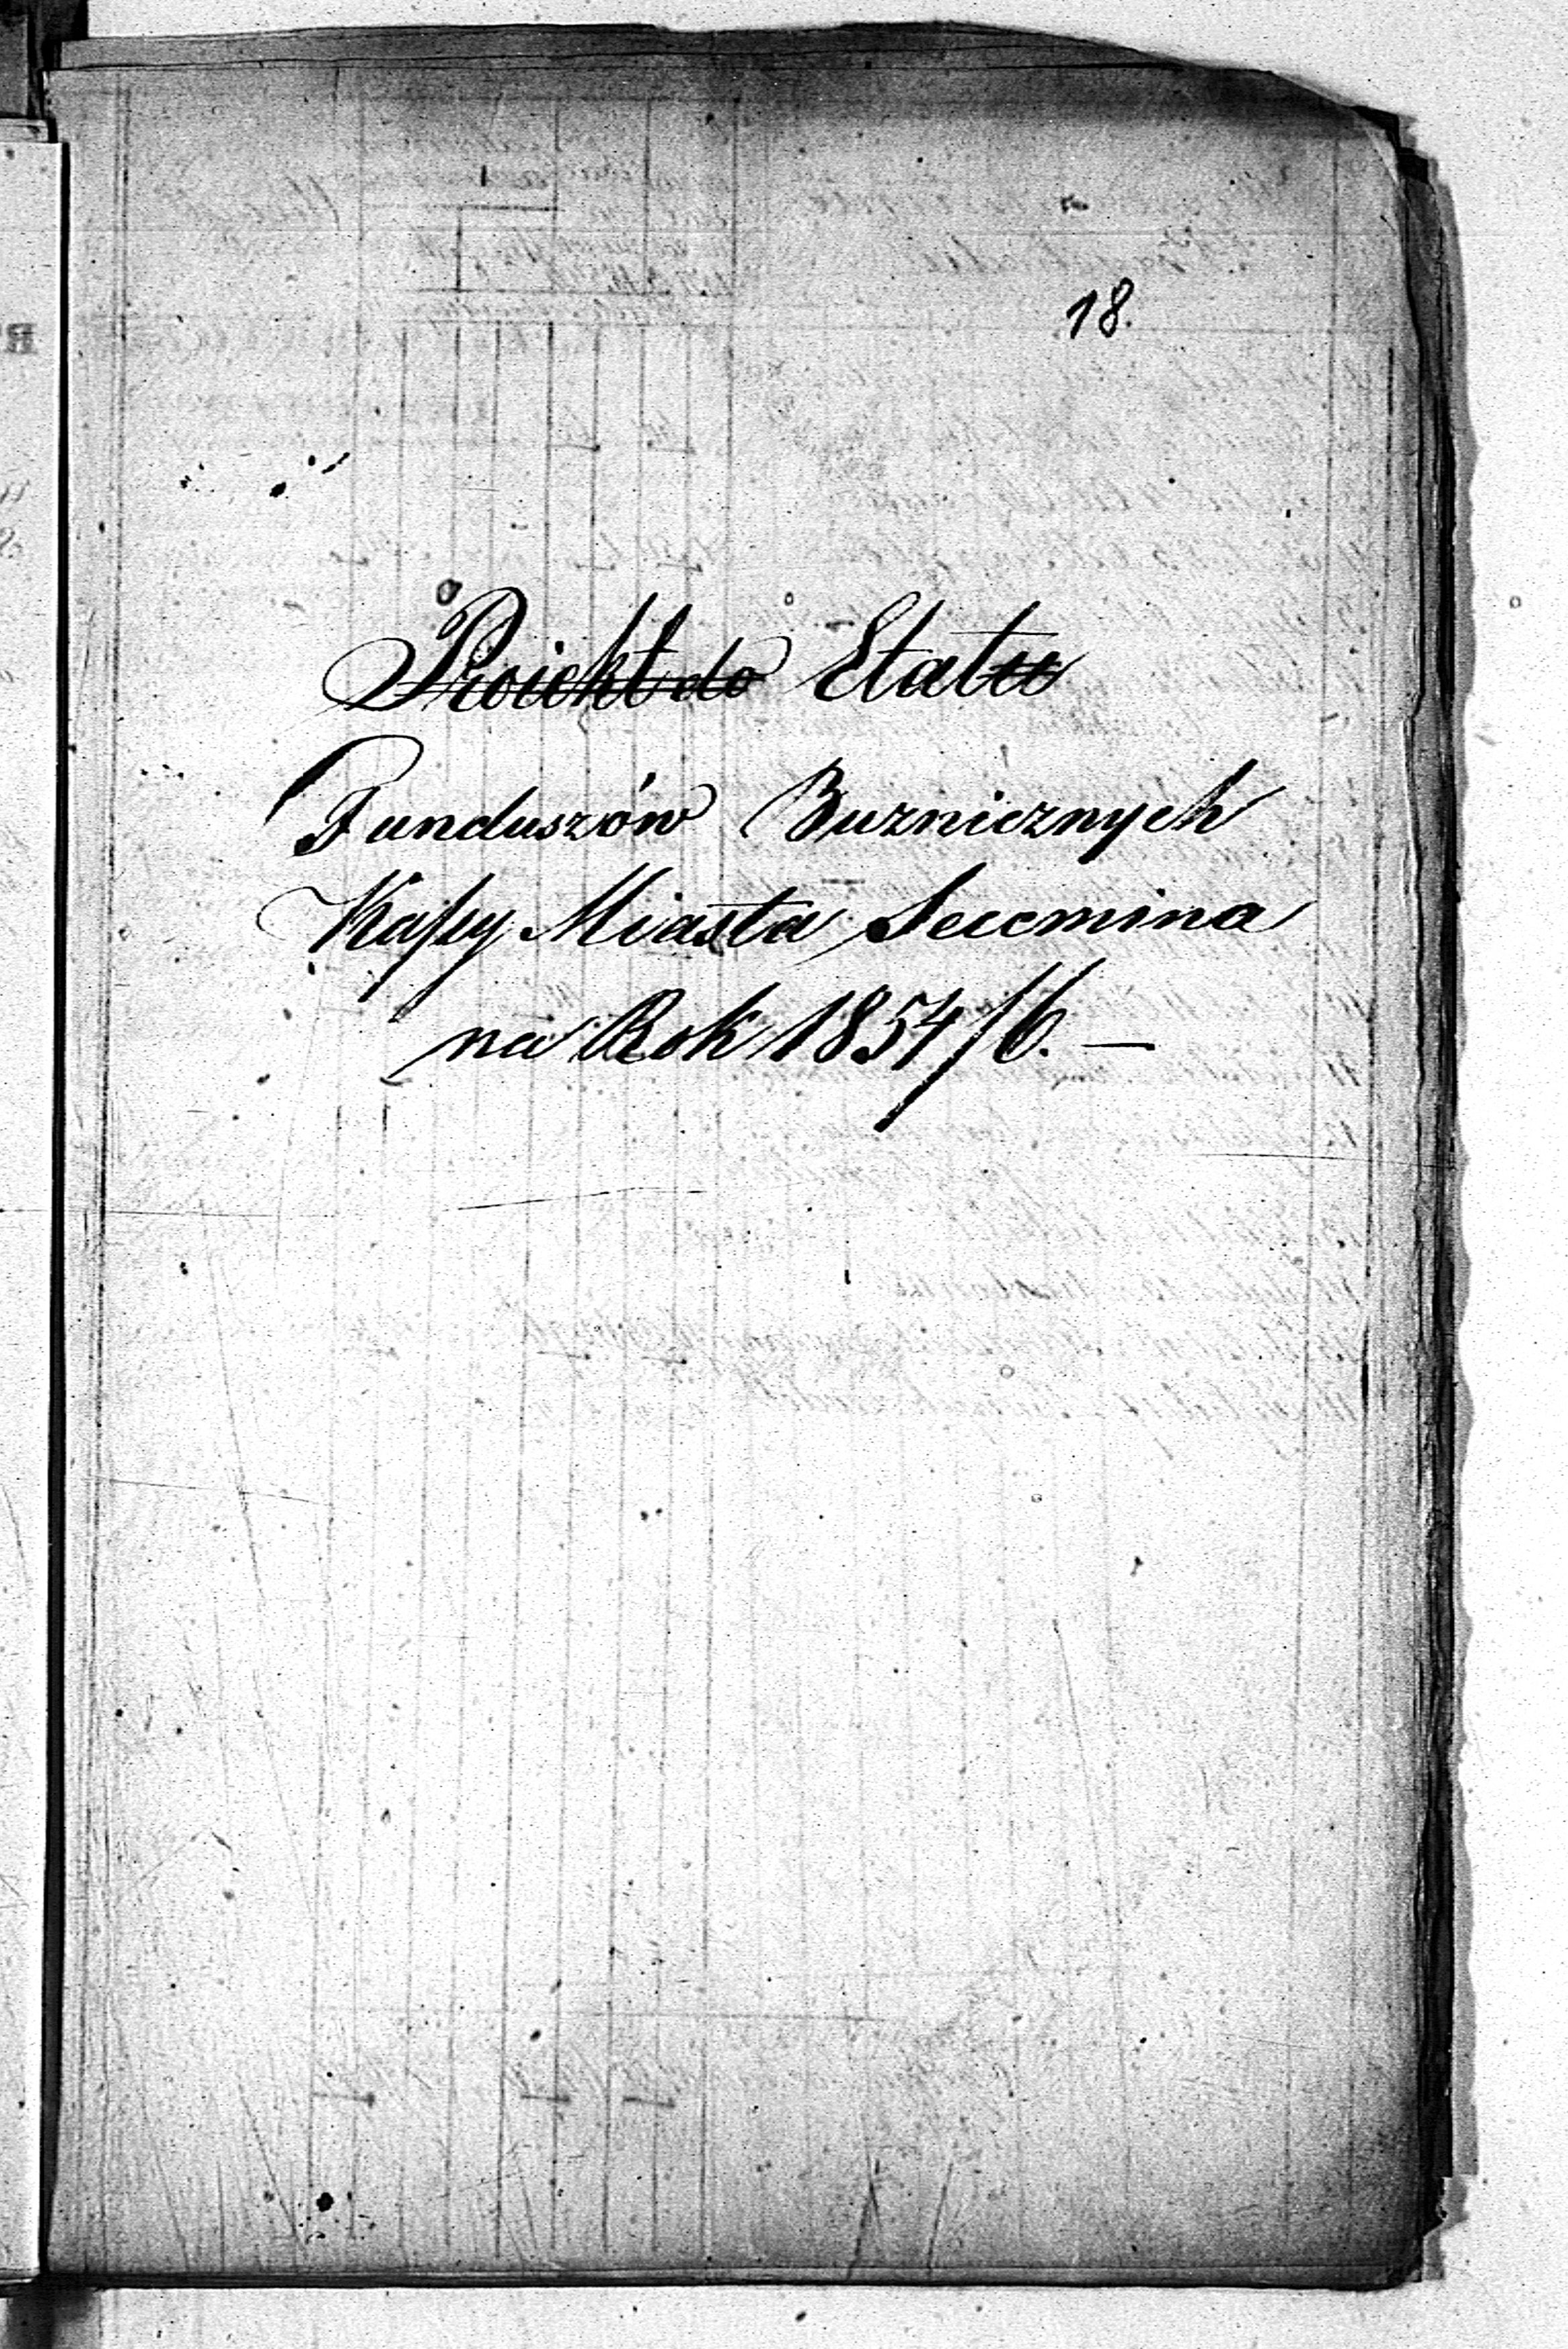 18.
Proiekt do Etatu
Funduszów Buznicznych
Kassy Miasta Secemina
na Rok 1854/6. —